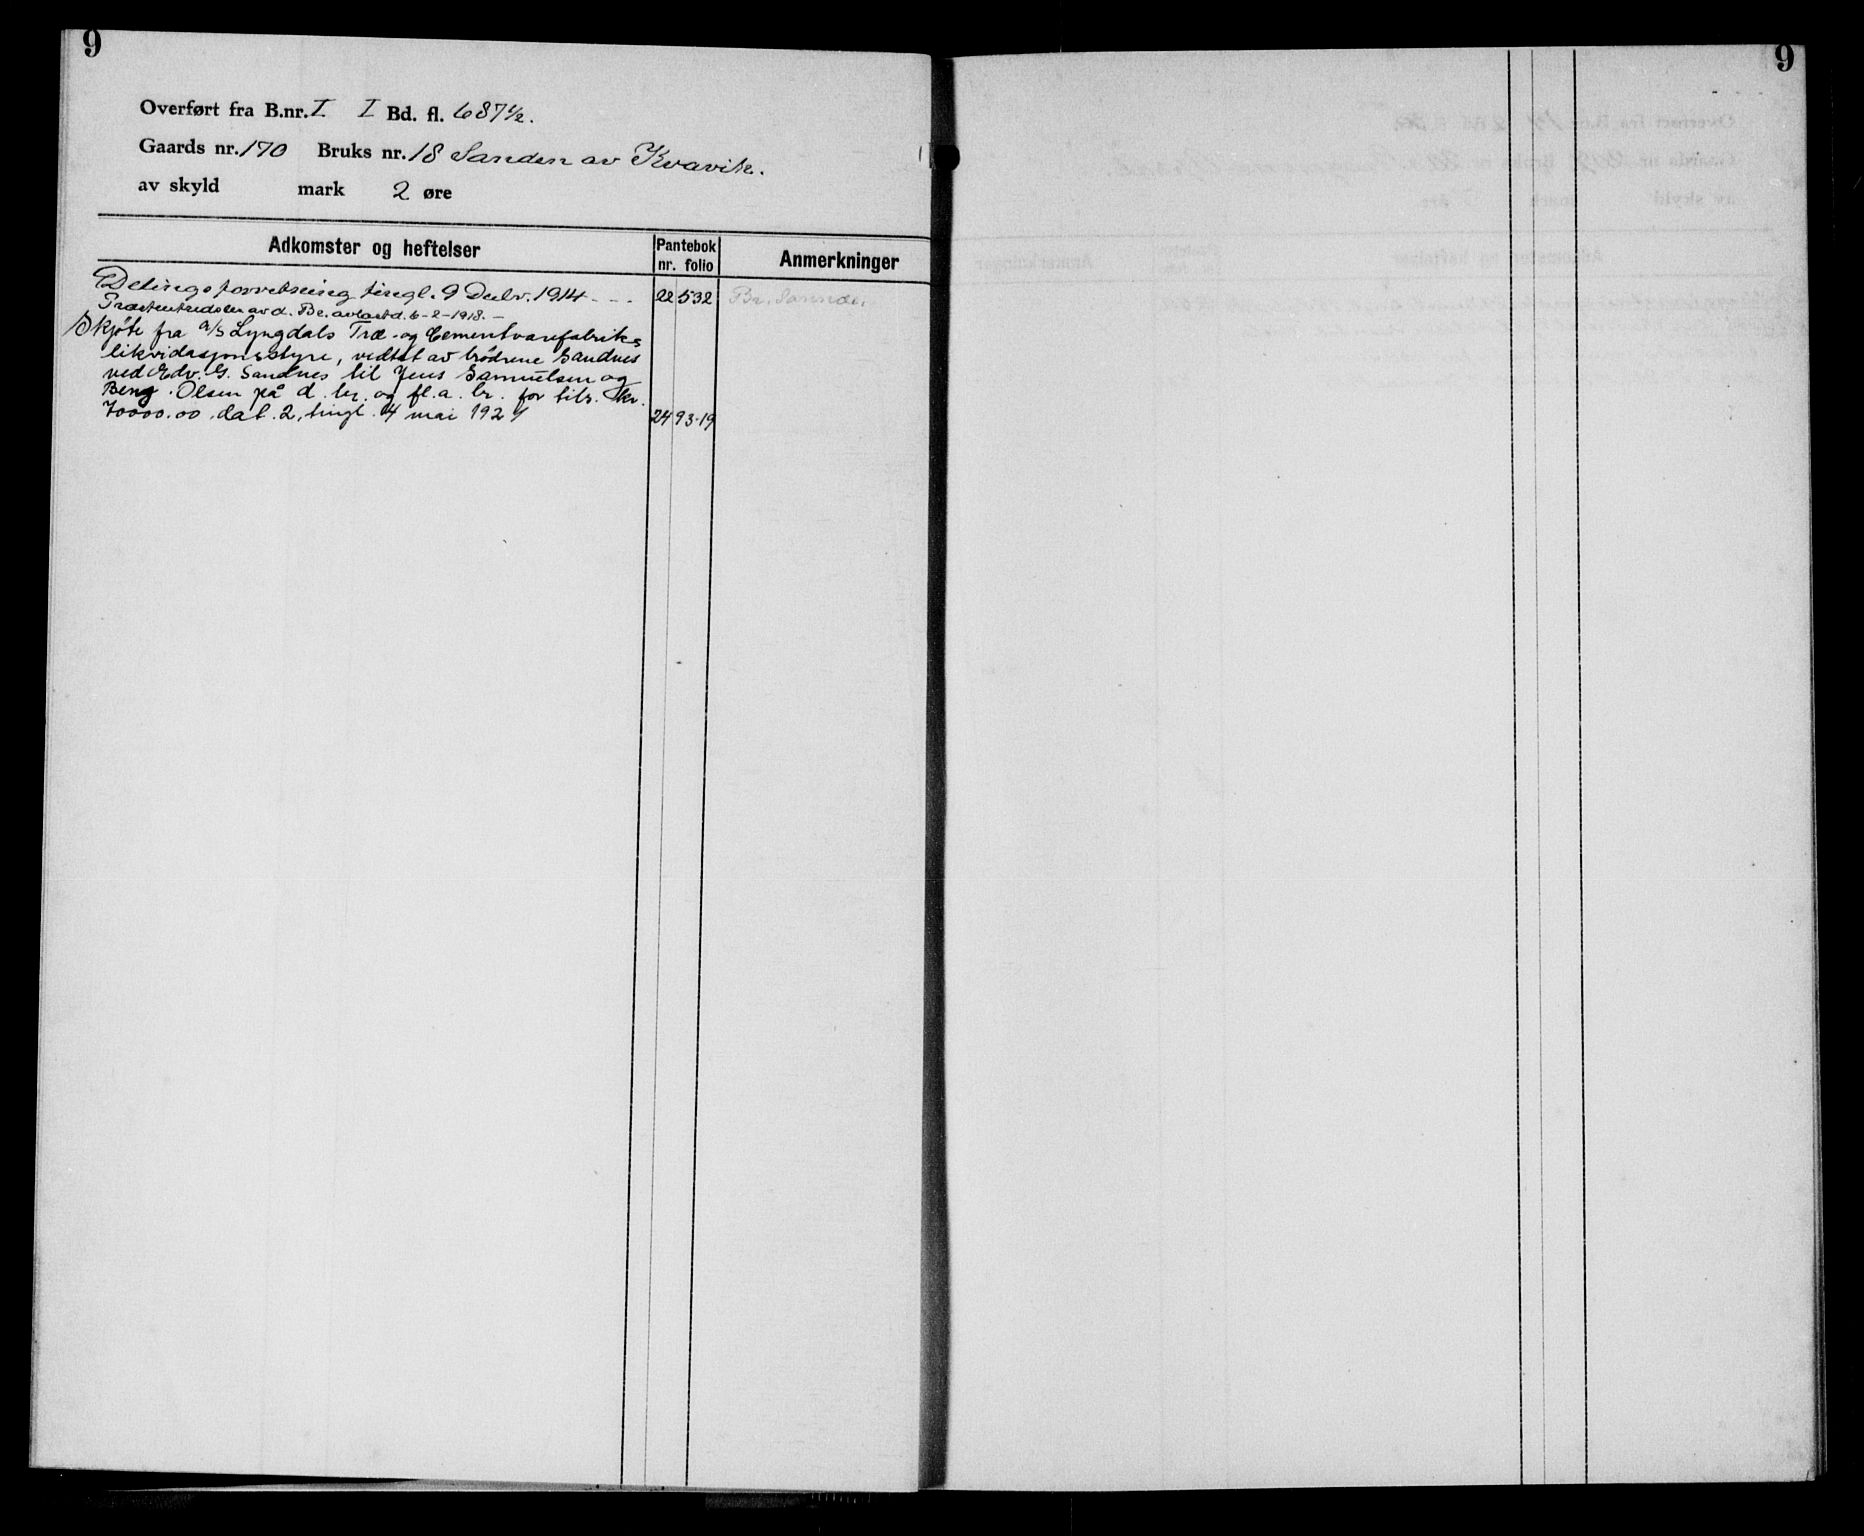 9
9
Overført fra B.nr. I I Bd. fl. 687½.
Gaards nr. 170 Bruks nr. 18 Sanden av Kvavik.
av skyld mark 2 øre
Adkomster og heftelser Pantebok nr. folio Anmerkninger
Delingsforretning tingl. 9 Decbr. 1914 - - - 22 532 Br. Sannæs.
av d. Br. avløst d. 6-2-1918. -
Skjøte fra a/s Lyngdals Træ- og Cementvarefabriks
likvidasjonsstyre, vedtat av brødrene Sandnes
ved Edv. G. Sandnes til Jens Samuelsen og
Beng. Olsen på d. br. og fl. a. br. for tils. kr.
70000.00, dat. 2, tingl. 4 mai 1921 24 93-19